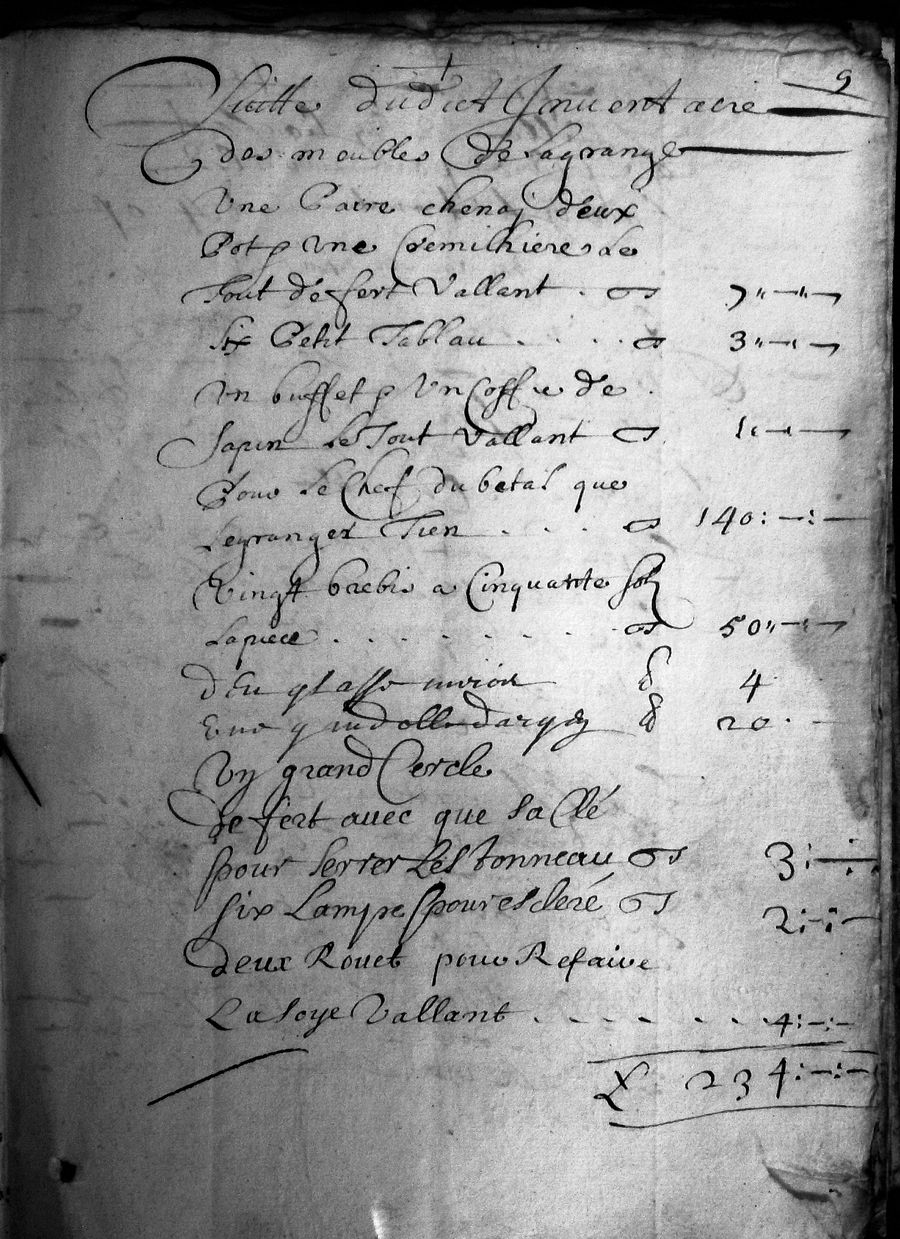 9
Suitte dudict Inventaire
des meubles de Lagrange
Une Paire chenaj deux
Pot p Une Cremihiere Le
Tout de fert Vallant . 7
Six Petit Tablau . . . . 3
Un buffet p Un Coffre de
Sapin Le Tout Vallant 1
Pour Le Chef du betal que
Legranger Tien . . . . 140
Vingt brebis a Cinquante sols
La piece . . . . . . . . 50
deu glasse miroir 4
20
Un grand Cercle
de fert avec que sa Clé
pour serrer Les tonneau 3
six Lampe pour escleré 2
deux Rouet pour Refaire
La soye Vallant . . . . . . . 4
L 234